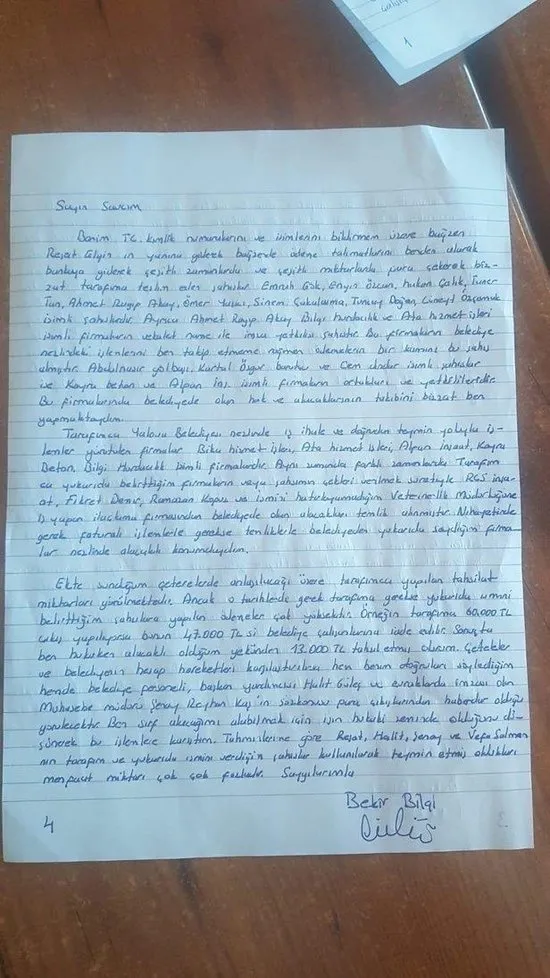 Sayın Savcım
Benim T.C. kimlik numaralarını ve isimlerini bildirmem üzere bazen
Reşat Elgin in yanına giderek bazende ödeme talimatlarını benden alarak
bankaya giderek çeşitli zamanlarda ve çeşitli miktarlarda para çekerek biz-
zat tarafıma teslim eden şahıslar Emrah Gök, Engin Özcan, Hakan Çalık, Taner
Tan, Ahmet Ragıp Akay, Ömer Yavaş, Sinem Doğan, Cüneyt
isimli şahıslardır. Ayrıca Ahmet Ragıp Akay Bilgi hurdacılık ve Ata hizmet işleri
isimli firmaların vekalet name ile imza yetkilisi şahıstır. Bu firmaların belediye
nezlindeki işlemlerini ben takip etmeme rağmen ödemelerin bir kısmını bu şahıs
almıştır. Abdulnasır Kartal Özgür ve Cem isimli şahıslar
ise Kayra beton ve Alpan inş. isimli firmaların ortakları ve yetkilileridir.
Bu firmalarında belediyede olan hak ve alacaklarının takibini bizzat ben
yapmaktaydım.
Tarafımca Yalova Belediyesi nezlinde iş ihale ve doğrudan temin yoluyla iş-
lemler yürütülen firmalar Biku hizmet işleri, Ata hizmet işleri, Alpan inşaat, Kayra
Beton, Bilgi Hurdacılık isimli firmalardır. Aynı zamanda farklı zamanlarda Tarafım
ca yukarıda belirttiğim firmaların veya şahsımın çekleri verilmek suretiyle RGS inşa-
at, Fikret Demir, Ramazan Kapus ve ismini hatırlayamadığım Veterinerlik Müdürlüğüne
iş yapan ilaçlama firmasından belediyede olan alacakları temlik alınmıştır. Nihayetinde
gerek faturalı işlemlerle gerekse temliklerle belediyeden yukarıda saydığım firma-
lar nezlinde alacaklı konumdaydım.
Ekte sunduğum çetelerelerde anlaşılacağı üzere tarafımca yapılan tahsilat
miktarları görülmektedir. Ancak o tarihlerde gerek tarafıma gerekse yukarıda ismini
belirttiğim şahıslara yapılan ödemeler çok yüksektir. Örneğin tarafıma 60.000 TL
çıkış yapılıyorsa bunun 47.000 TL si belediye çalışanlarına iade edilir. Sonuçta
ben hukuken alacaklı olduğum yekünden 13.000 TL tahsil etmiş olurum. Çeteleler
ve belediyenin hesap hareketleri karşılaştırılınca hem benim doğruları söylediğim
hemde belediye personeli, başkan yardımcısı Halit Güleç ve evraklarda imzası olan
Muhasebe müdürü Şenay Reyhan Kaş'ın sözkonusu para çıkışlarından haberdar olduğu
görülecektir. Ben sırf alacağımı alabilmek için işin hukuki zeminde olduğunu dü-
şünerek bu işlemlere karıştım. Tahminlerime göre Reşat, Halit, Şenay ve Vefa Salman
nın tarafım ve yukarıda ismini verdiğim şahıslar kullanılarak temin etmiş oldukları
menfaat miktarı çok çok fazladır. Saygılarımla
Bekir Bilgi
4
1